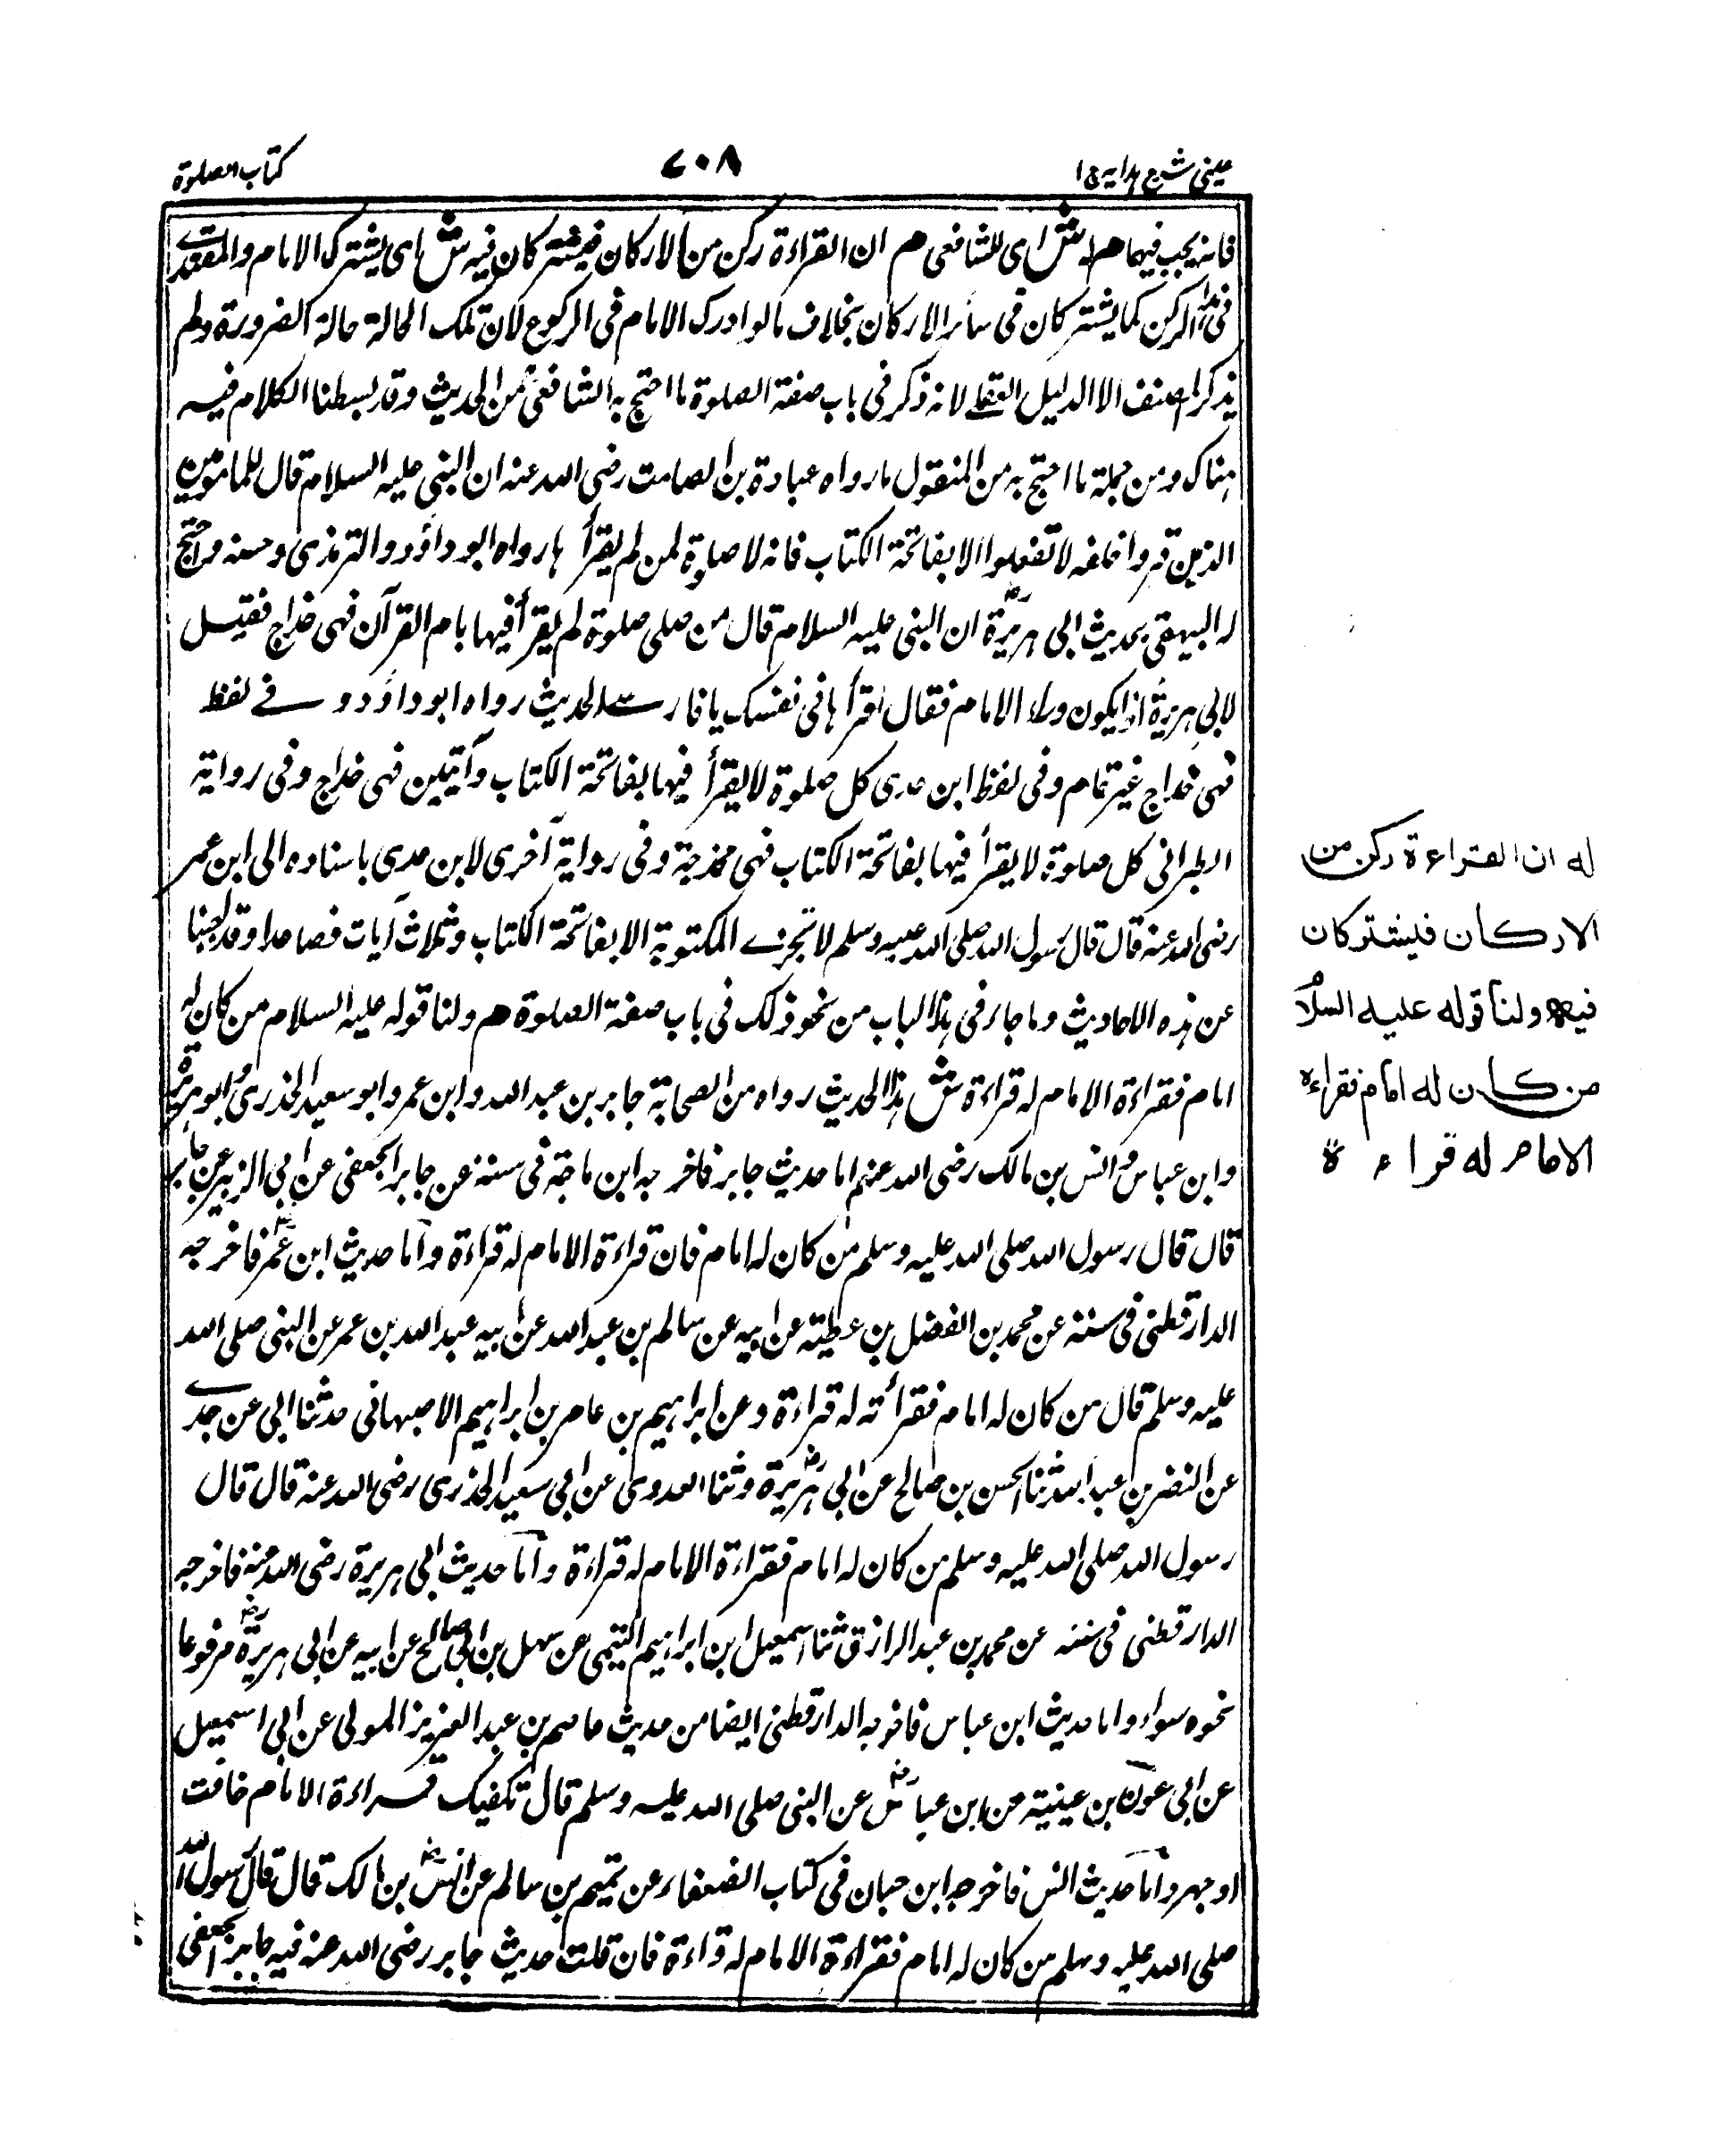 عینی شرح ہدایہ ج ۱
٧٠٨
کتاب الصلوة
فانه يجب فيهما هم له ش اى للشافعى هم ان القراءة ركن من الاركان فيشتركان فيه ش اى يشترك الامام والمقتدى
فى هذا الركن كما يشتركان فى سائر الاركان بخلاف ما لو ادرك الامام فى الركوع لان تلك الحالة حالة الضرورة ولم
يذكر المصنف الا الدليل العقلى لانه ذكر فى باب صفة الصلوة ما احتج به الشافعى من الحديث وقد بسطنا الكلام فيه
هناك ومن جملة ما احتج به من المنقول ما رواه عبادة بن الصامت رضى الله عنه ان النبى عليه السلام قال للمامومين
الذين قرءوا خلفه لا تفعلوا الا بفاتحة الكتاب فانه لا صلوة لمن لم يقرأ بها رواه ابو داؤد والترمذى وحسنه واحتج
له البيهقى بحديث ابى هريرة ان النبى عليه السلام قال من صلى صلوة لم يقرأ فيها بام القرآن فهى خداج فقيل
لابى هريرة انا نكون وراء الامام فقال اقرأ بها فى نفسك يا فارسى الحديث رواه ابو داؤد و فى لفظ
فهى خداج غير تمام وفى لفظ ابن عدى كل صلوة لا يقرأ فيها بفاتحة الكتاب وآيتين فهى خداج وفى رواية
الطبرانى كل صلوة لا يقرأ فيها بفاتحة الكتاب فهى مخدجة وفى رواية آخرى لابن عدى باسناده الى ابن عمر
رضى الله عنه قال قال رسول الله صلى الله عليه وسلم لا تجزى المكتوبة الا بفاتحة الكتاب وثلاث آيات فصاعدا وقد اجبنا
عن هذه الاحاديث وما جاء فى هذا الباب من نحو ذلك فى باب صفة الصلوة هم ولنا قوله عليه السلام من كان له
امام فقراءة الامام له قراءة ش هذا الحديث رواه من الصحابة جابر بن عبد الله وابن عمر وابو سعيد الخذرى وابو هريرة
وابن عباس وانس بن مالك رضى الله عنهم اما حديث جابر فاخرجه ابن ماجة فى سننه عن جابر الجعفى عن ابى الزبير عن جابر
قال قال رسول الله صلى الله عليه وسلم من كان له امام فان قراءة الامام له قراءة وأما حديث ابن عمر فاخرجه
الدارقطنى فى سننه عن محمد بن الفضل بن عطية عن ابيه عن سالم بن عبد الله عن ابيه عبد الله بن عمر عن النبى صلى الله
عليه وسلم قال من كان له امام فقرأته له قراءة وعن ابراهيم بن عامر بن ابراهيم الاصبهانى حدثنا ابى عن جدى
عن النضر بن عبد الله ثنا الحسن بن صالح عن ابى هريرة وثنا العدوى عن ابى سعيد الخذرى رضى الله عنه قال قال
رسول الله صلى الله عليه وسلم من كان له امام فقراءة الامام له قراءة وأما حديث ابى هريرة رضى الله عنه فاخرجه
الدارقطنى فى سننه عن محمد بن عبد الرازق ثنا اسمعيل ابن ابراهيم التيمى عن سهل بن ابى صالح عن ابيه عن ابى هريرة مرفوعا
نحوه سواء واما حديث ابن عباس فاخرجه الدارقطنى ايضا من حديث عاصم بن عبد العزيز المولى عن ابى اسمعيل
عن ابى عون بن عينية عن ابن عباس عن النبى صلى الله عليه وسلم قال تكفيك قراءة الامام خافت
او جهر وأما حديث انس فاخرجه ابن حبان فى كتاب الضعفاء عن تميم بن سالم عن انس بن مالك قال قال رسول الله
صلى الله عليه وسلم من كان له امام فقراءة الامام له قراءة فان قلت حديث جابر رضى الله عنه فيه جابر الجعفى
له ان القراءة ركن من
الاركان فيشتركان
فيه ولنا قوله عليه السلام
من كان له امام فقراءة
الامام له قراءة